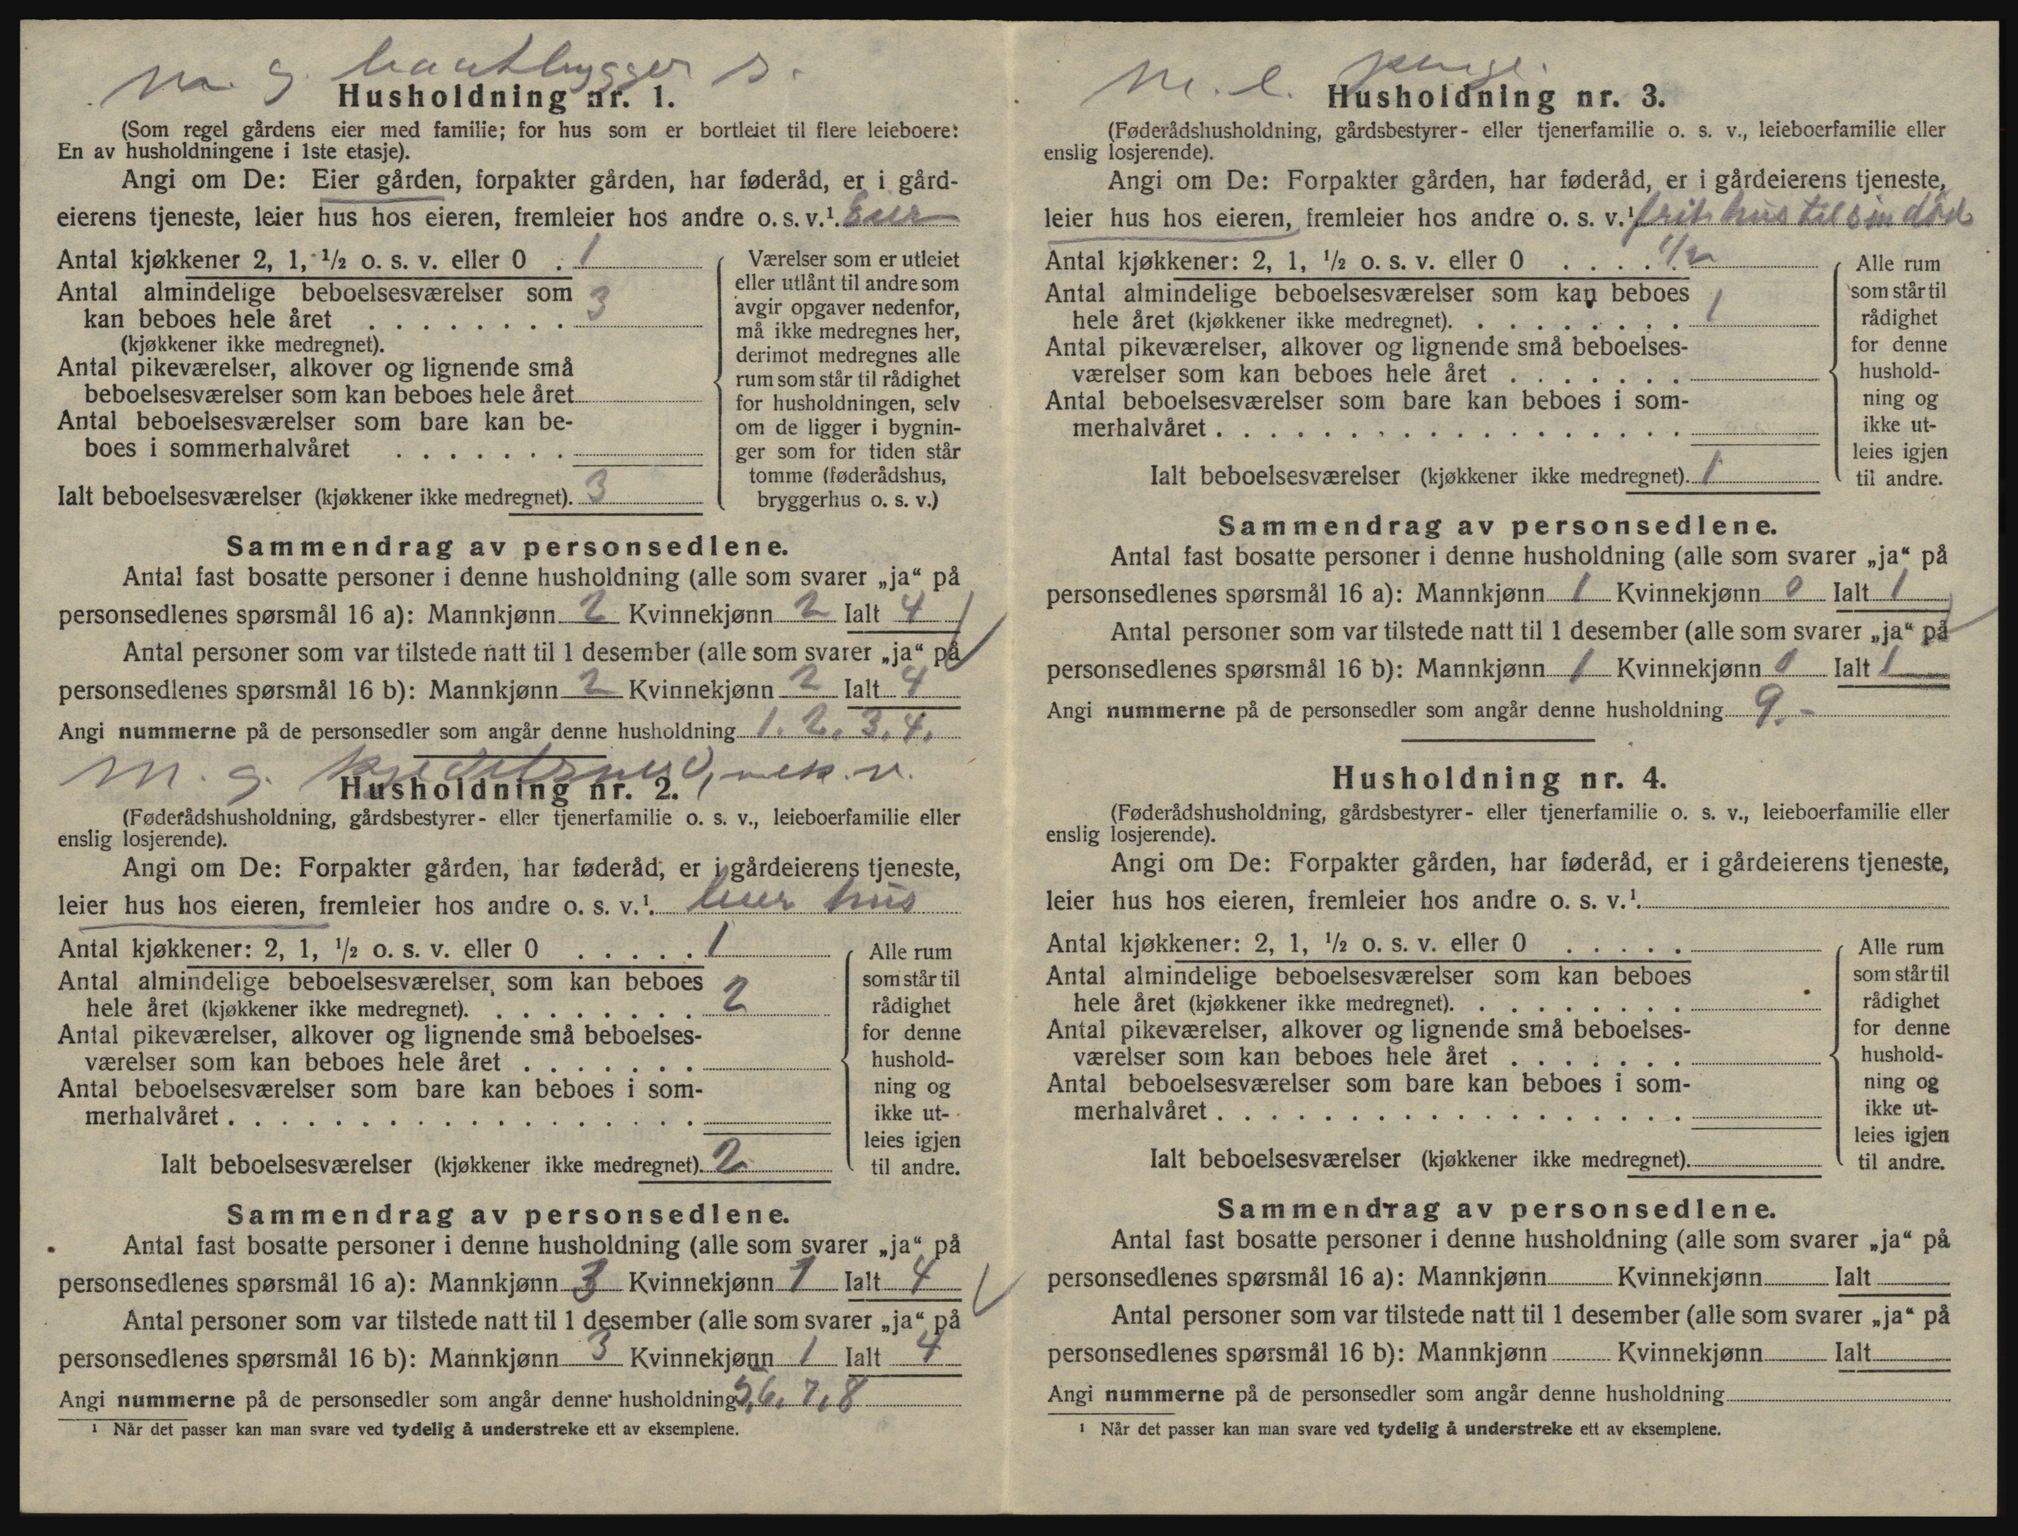 m. g. baatbygger s.
Husholdning nr. 1.
(Som regel gårdens eier med familie; for hus som er bortleiet til flere leieboere:
En av husholdningene i 1ste etasje).
Angi om De: Eier gården, forpakter gården, har føderåd, er i gård-
eierens tjeneste, leier hus hos eieren, fremleier hos andre o. s. v.¹. Eier
Antal kjøkkener 2, 1, ½ o. s. v. eller 0 . 1
Antal almindelige beboelsesværelser som
kan beboes hele året . . . . . . . . 3
(kjøkkener ikke medregnet).
Antal pikeværelser, alkover og lignende små
beboelsesværelser som kan beboes hele året
Antal beboelsesværelser som bare kan be-
boes i sommerhalvåret . . . . . . .
Ialt beboelsesværelser (kjøkkener ikke medregnet). 3
Værelser som er utleiet
eller utlånt til andre som
avgir opgaver nedenfor,
må ikke medregnes her,
derimot medregnes alle
rum som står til rådighet
for husholdningen, selv
om de ligger i bygnin-
ger som for tiden står
tomme (føderådshus,
bryggerhus o. s. v.)
Sammendrag av personsedlene.
Antal fast bosatte personer i denne husholdning (alle som svarer „ja“ på
personsedlenes spørsmål 16 a): Mannkjønn 2 Kvinnekjønn 2 Ialt 4
Antal personer som var tilstede natt til 1 desember (alle som svarer „ja“ på
personsedlenes spørsmål 16 b): Mannkjønn 2 Kvinnekjønn 2 Ialt 4
Angi nummerne på de personsedler som angår denne husholdning 1. 2. 3. 4.
m. g.
Husholdning nr. 2.
(Føderådshusholdning, gårdsbestyrer- eller tjenerfamilie o. s. v., leieboerfamilie eller
enslig losjerende).
Angi om De: Forpakter gården, har føderåd, er i gårdeierens tjeneste,
leier hus hos eieren, fremleier hos andre o. s. v.¹. leier hus
Antal kjøkkener: 2, 1, ½ o. s. v. eller 0 . . . . . 1
Antal almindelige beboelsesværelser som kan beboes
hele året (kjøkkener ikke medregnet). . . . . . . . . 2
Antal pikeværelser, alkover og lignende små beboelses-
værelser som kan beboes hele året . . . . . . .
Antal beboelsesværelser som bare kan beboes i som-
merhalvåret . . . . . . . . . . . . . . . . . .
Ialt beboelsesværelser (kjøkkener ikke medregnet). 2
Alle rum
som står til
rådighet
for denne
hushold-
ning og
ikke ut-
leies igjen
til andre.
Sammendrag av personsedlene.
Antal fast bosatte personer i denne husholdning (alle som svarer „ja“ på
personsedlenes spørsmål 16 a): Mannkjønn 3 Kvinnekjønn 1 Ialt 4
Antal personer som var tilstede natt til 1 desember (alle som svarer „ja“ på
personsedlenes spørsmål 16 b): Mannkjønn 3 Kvinnekjønn 1 Ialt 4
Angi nummerne på de personsedler som angår denne husholdning 5, 6, 7, 8
¹ Når det passer kan man svare ved tydelig å understreke ett av eksemplene.
m. l.
Husholdning nr. 3.
(Føderådshusholdning, gårdsbestyrer- eller tjenerfamilie o. s. v., leieboerfamilie eller
enslig losjerende).
Angi om De: Forpakter gården, har føderåd, er i gårdeierens tjeneste,
leier hus hos eieren, fremleier hos andre o. s. v.¹ frit hus til sin død
Antal kjøkkener: 2, 1, ½ o. s. v. eller 0 . . . . . 1/2
Antal almindelige beboelsesværelser som kan beboes
hele året (kjøkkener ikke medregnet). . . . . . . . . 1
Antal pikeværelser, alkover og lignende små beboelses-
værelser som kan beboes hele året . . . . . . .
Antal beboelsesværelser som bare kan beboes i som-
merhalvåret . . . . . . . . . . . . . . . . . .
Ialt beboelsesværelser (kjøkkener ikke medregnet). 1
Alle rum
som står til
rådighet
for denne
hushold-
ning og
ikke ut-
leies igjen
til andre.
Sammendrag av personsedlene.
Antal fast bosatte personer i denne husholdning (alle som svarer „ja“ på
personsedlenes spørsmål 16 a): Mannkjønn 1 Kvinnekjønn 0 Ialt 1
Antal personer som var tilstede natt til 1 desember (alle som svarer „ja“ på
personsedlenes spørsmål 16 b): Mannkjønn 1 Kvinnekjønn 0 Ialt 1
Angi nummerne på de personsedler som angår denne husholdning 9. -
Husholdning nr. 4.
(Føderådshusholdning, gårdsbestyrer- eller tjenerfamilie o. s. v., leieboerfamilie eller
enslig losjerende).
Angi om De: Forpakter gården, har føderåd, er i gårdeierens tjeneste,
leier hus hos eieren, fremleier hos andre o. s. v.¹.
Antal kjøkkener: 2, 1, ½ o. s. v. eller 0 . . . . .
Antal almindelige beboelsesværelser som kan beboes
hele året (kjøkkener ikke medregnet). . . . . . . . .
Antal pikeværelser, alkover og lignende små beboelses-
værelser som kan beboes hele året . . . . . . .
Antal beboelsesværelser som bare kan beboes i som-
merhalvåret . . . . . . . . . . . . . . . . . .
Ialt beboelsesværelser (kjøkkener ikke medregnet).
Alle rum
som står til
rådighet
for denne
hushold-
ning og
ikke ut-
leies igjen
til andre.
Sammendrag av personsedlene.
Antal fast bosatte personer i denne husholdning (alle som svarer „ja“ på
personsedlenes spørsmål 16 a): Mannkjønn Kvinnekjønn Ialt
Antal personer som var tilstede natt til 1 desember (alle som svarer „ja“ på
personsedlenes spørsmål 16 b): Mannkjønn Kvinnekjønn Ialt
Angi nummerne på de personsedler som angår denne husholdning
¹ Når det passer kan man svare ved tydelig å understreke ett av eksemplene.